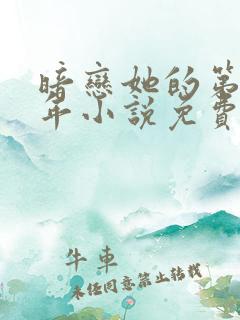 暗戀她的第
年小說免費
牛車
未经同意禁止转载